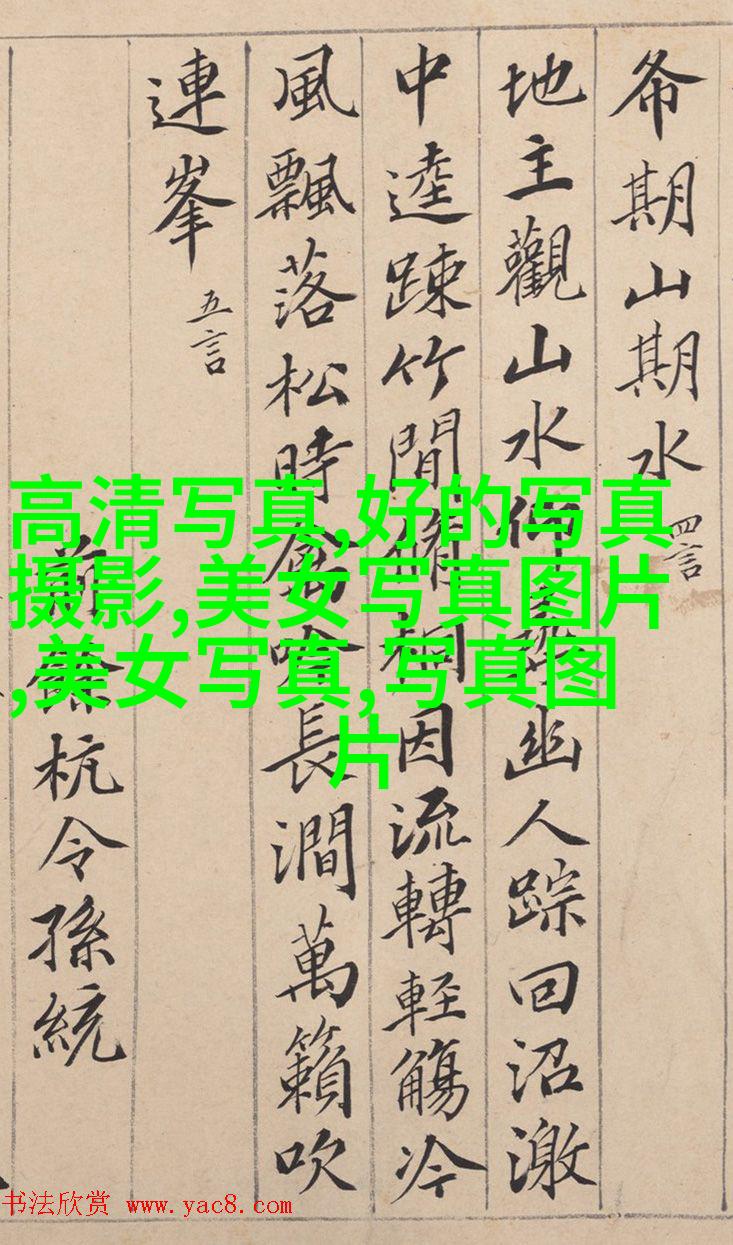 希期山期水 四言
地主觀山水仰尋幽人踪回沼激
中逵踈竹間脩桐因流轉輕觴冷
風飄落松時禽吟長澗萬籟吹
連峯 五言
前餘杭令孫統
高清写真,好的写真
摄影,美女写真图片
,美女写真,写真图
片
书法欣赏 www.yac8.com